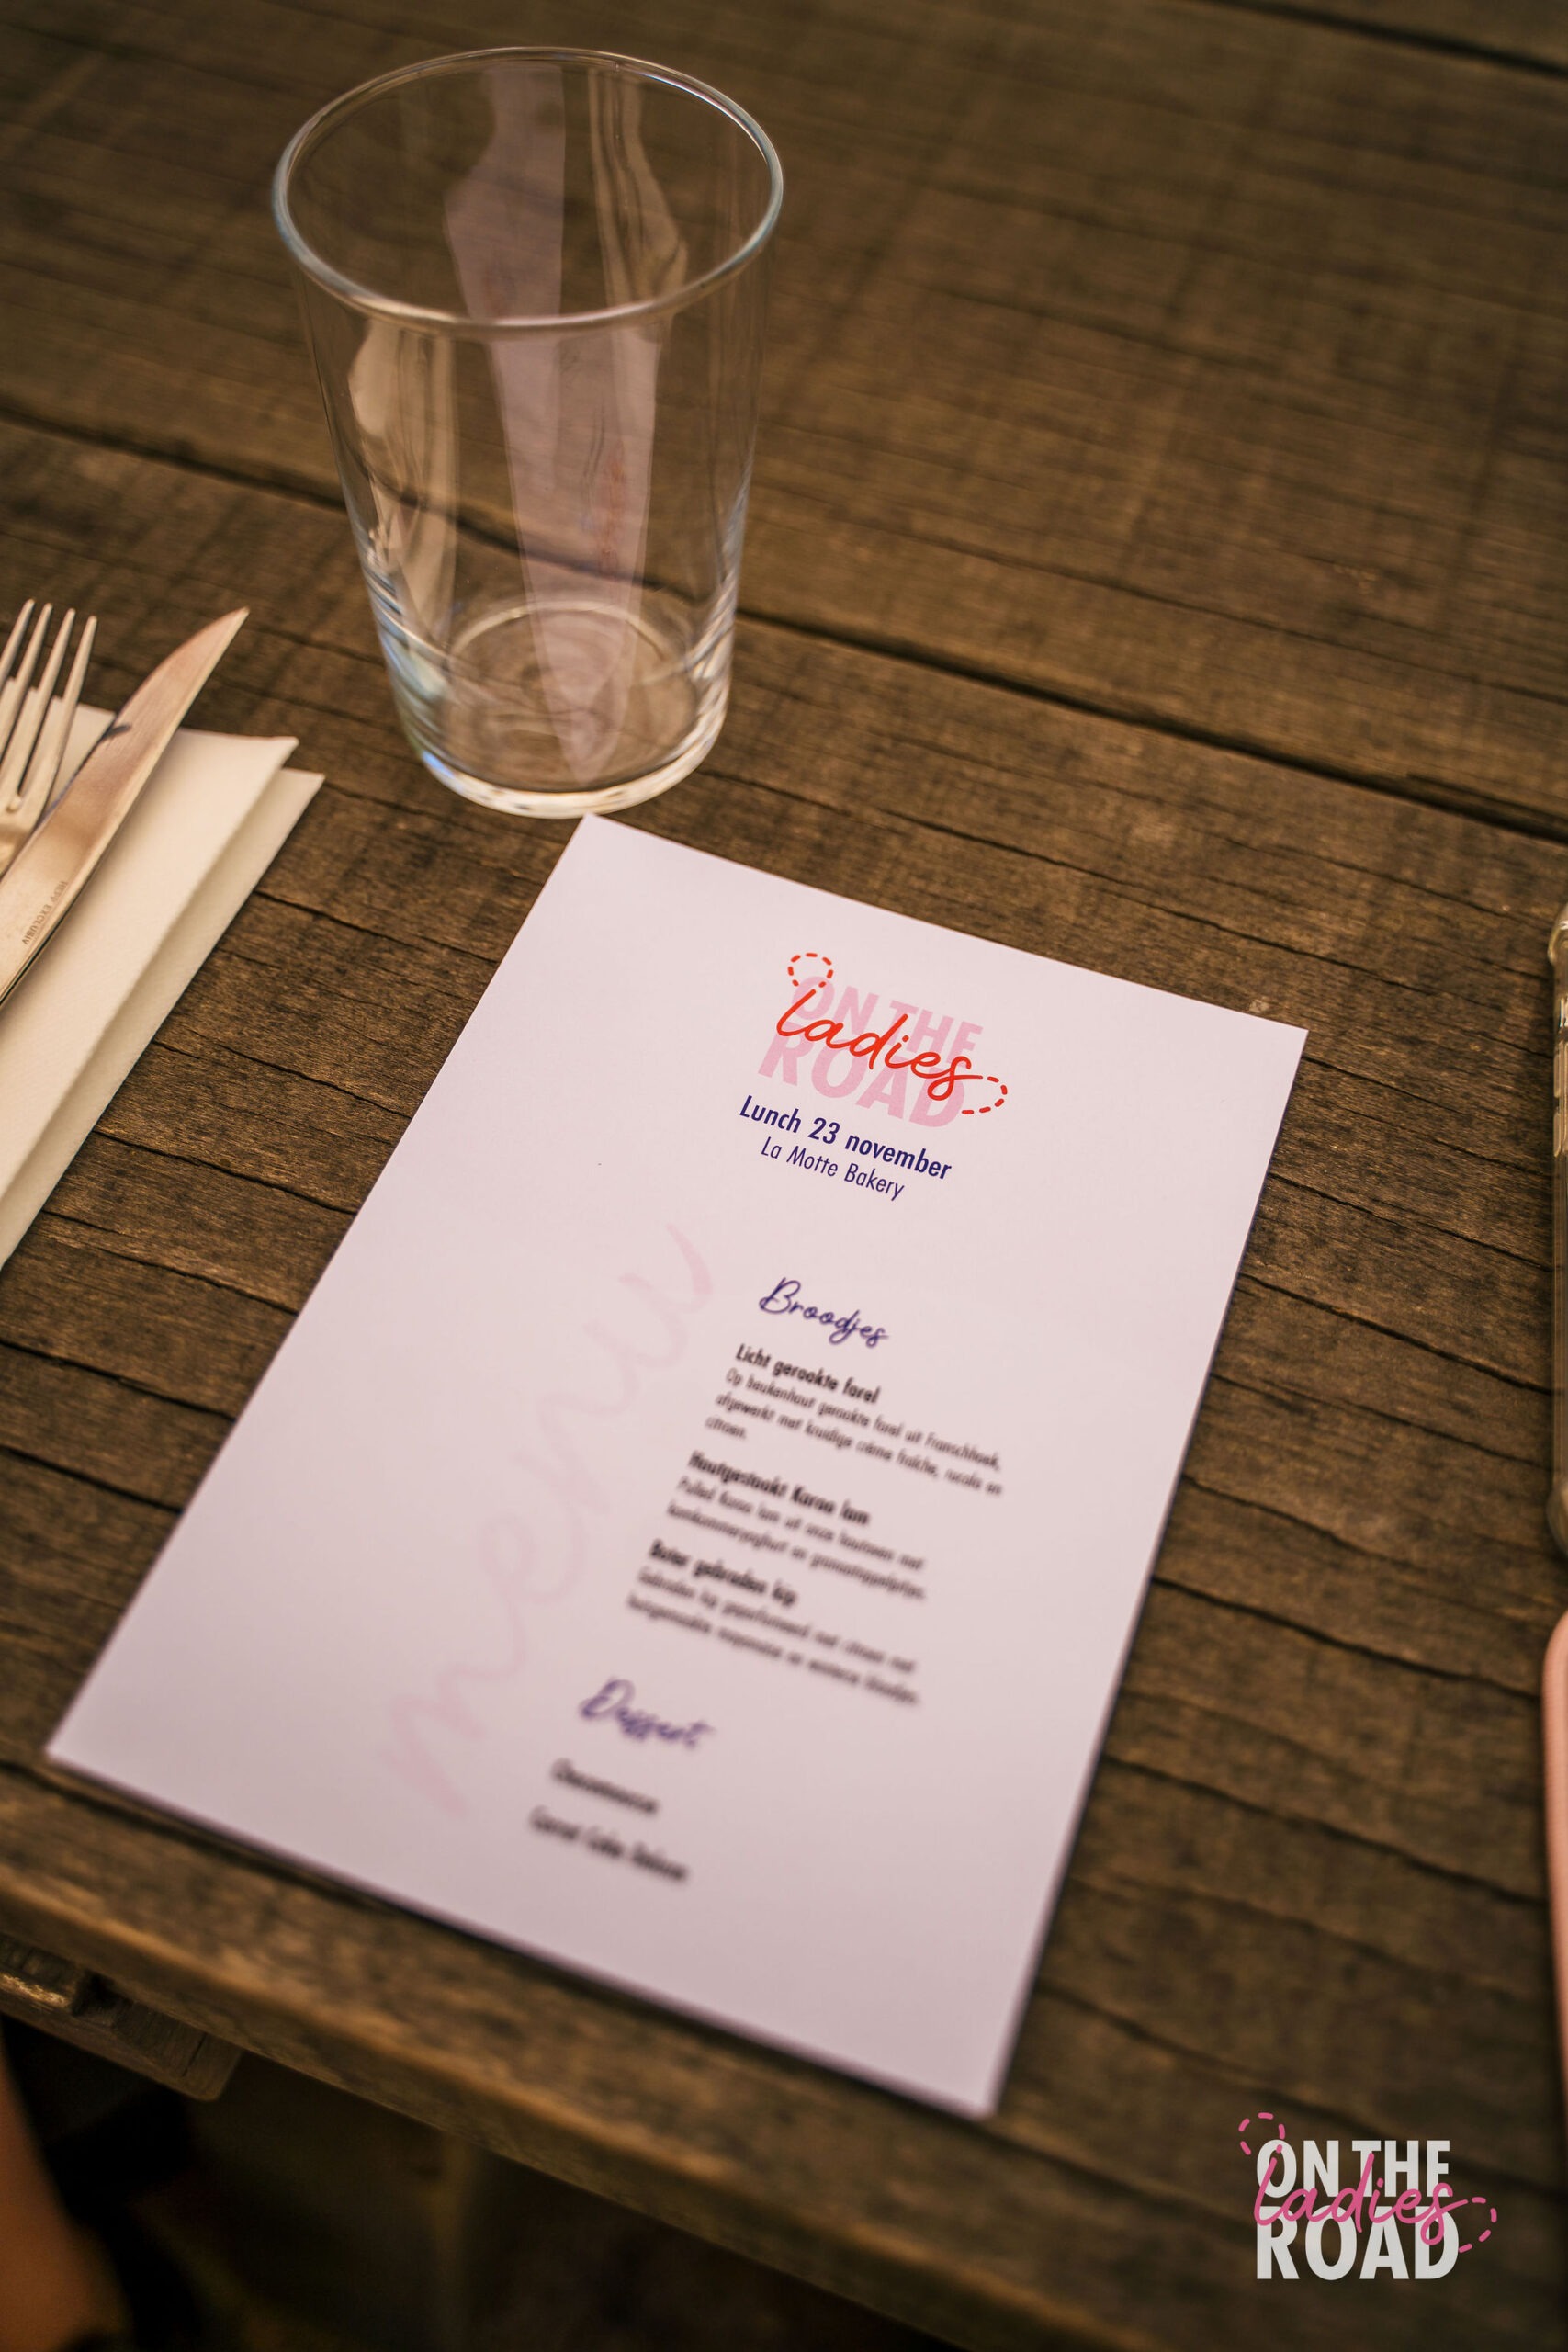 ON THE
ladies
ROAD
Lunch 23 november
La Motte Bakery
menu
Broodjes
Licht gerookte forel
Op beukenhout gerookte forel uit Franschhoek,
afgewerkt met kruidige crème fraîche, rucola en
citroen.
Houtgestookt Karoo lam
Pulled Karoo lam uit onze houtoven met
komkommeryoghurt en granaatappelpitjes.
Boter gebraden kip
Gebraden kip geparfumeerd met citroen met
huisgemaakte mayonaise en
Dessert
ON THE
ladies
ROAD